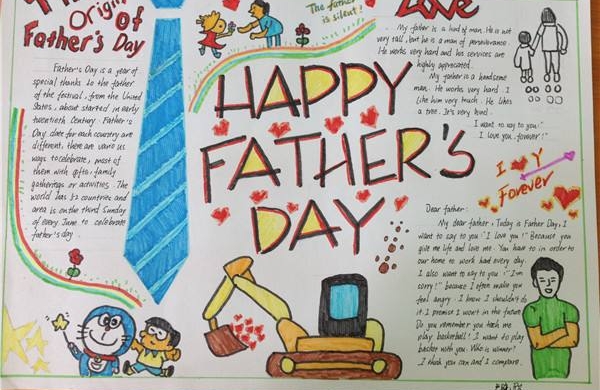 Origin
of
Father's Day
Father's Day is a year of
special thanks to the father
of the festival, from the United
States, about started in early
twentieth Century. Father's
Day date for each country are
different, there are
ways to celebrate, most of
them with gifts, family
gatherings or activities. The
world has 52 countries and
area is on the third Sunday
of every June to celebrate
father's day.
The father
is silent!
HAPPY
FATHER'S
DAY
Love
My father is a kind of man. He is not
very tall, but he is a man of perseverance.
He works very hard and his services are
highly appreciated.
My father is a handsome
man. He works very hard. I
like him very much. He likes
a tree. It's very loved.
I want to say to you:
I love you forever!
I Y
Forever
Dear father:
My dear father, Today is Father Day, I
want to say to you "I love you!" Because you
give me life and love me. You have to in order to
our home to work hard every day.
I also want to say to you: "I'm
sorry!" because I often make you
feel angry. I know I shouldn't do
it. I promise I won't in the future.
Do you remember you teach me
play basketball! I want to play
basket with you. Who is winner?
I think you can and I compare.